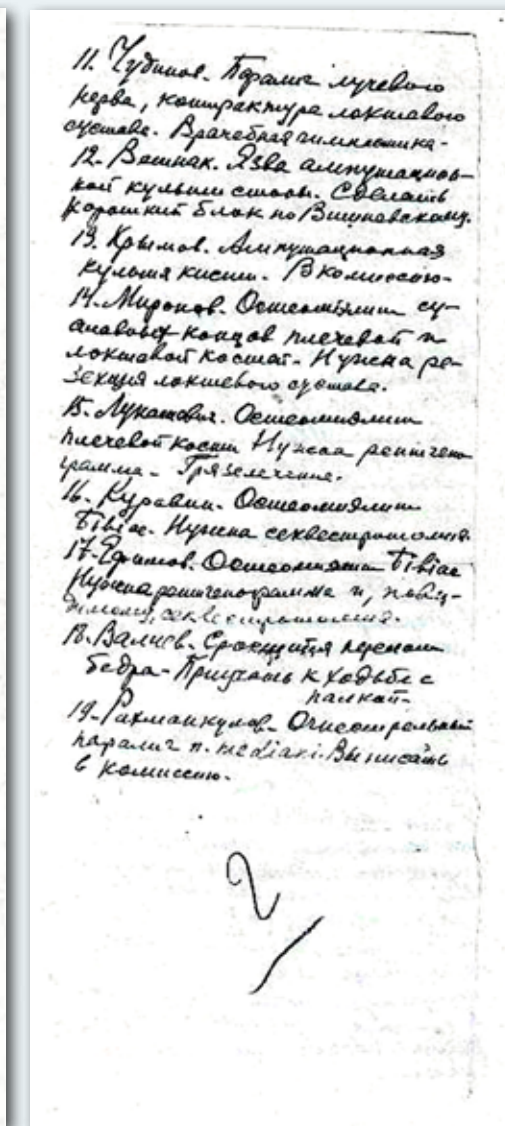 11. Чудинов. Паралич лучевого
нерва, контрактура локтевого
сустава. Врачебная гимнастика.
12. Язва ампутацион-
ной культи стопы. Сделать
короткий блок по Вишневскому.
13. Крымов. Ампутационная
культя кисти. В комиссию.
14. Миронов. Остеомиэлит су-
ставных концов плечевой и
локтевой костей. Нужна ре-
зекция локтевого сустава.
15. Лукашевич. Остеомиэлит
плечевой кости Нужна рентгено
грамма. Грязелечение.
16. Куравин. Остеомиэлит
tibiae. Нужна секвестротомия.
17. Ефимов. Остеомиэлит tibiae
Нужна рентгенограмма и, пови-
димому, секвестротомия.
18. Валиев. Сросшийся перелом
бедра. Приучать к ходьбе с
палкой.
19. Рахманкулов. Огнестрельный
паралич n. mediani. Выписать
в комиссию.
2